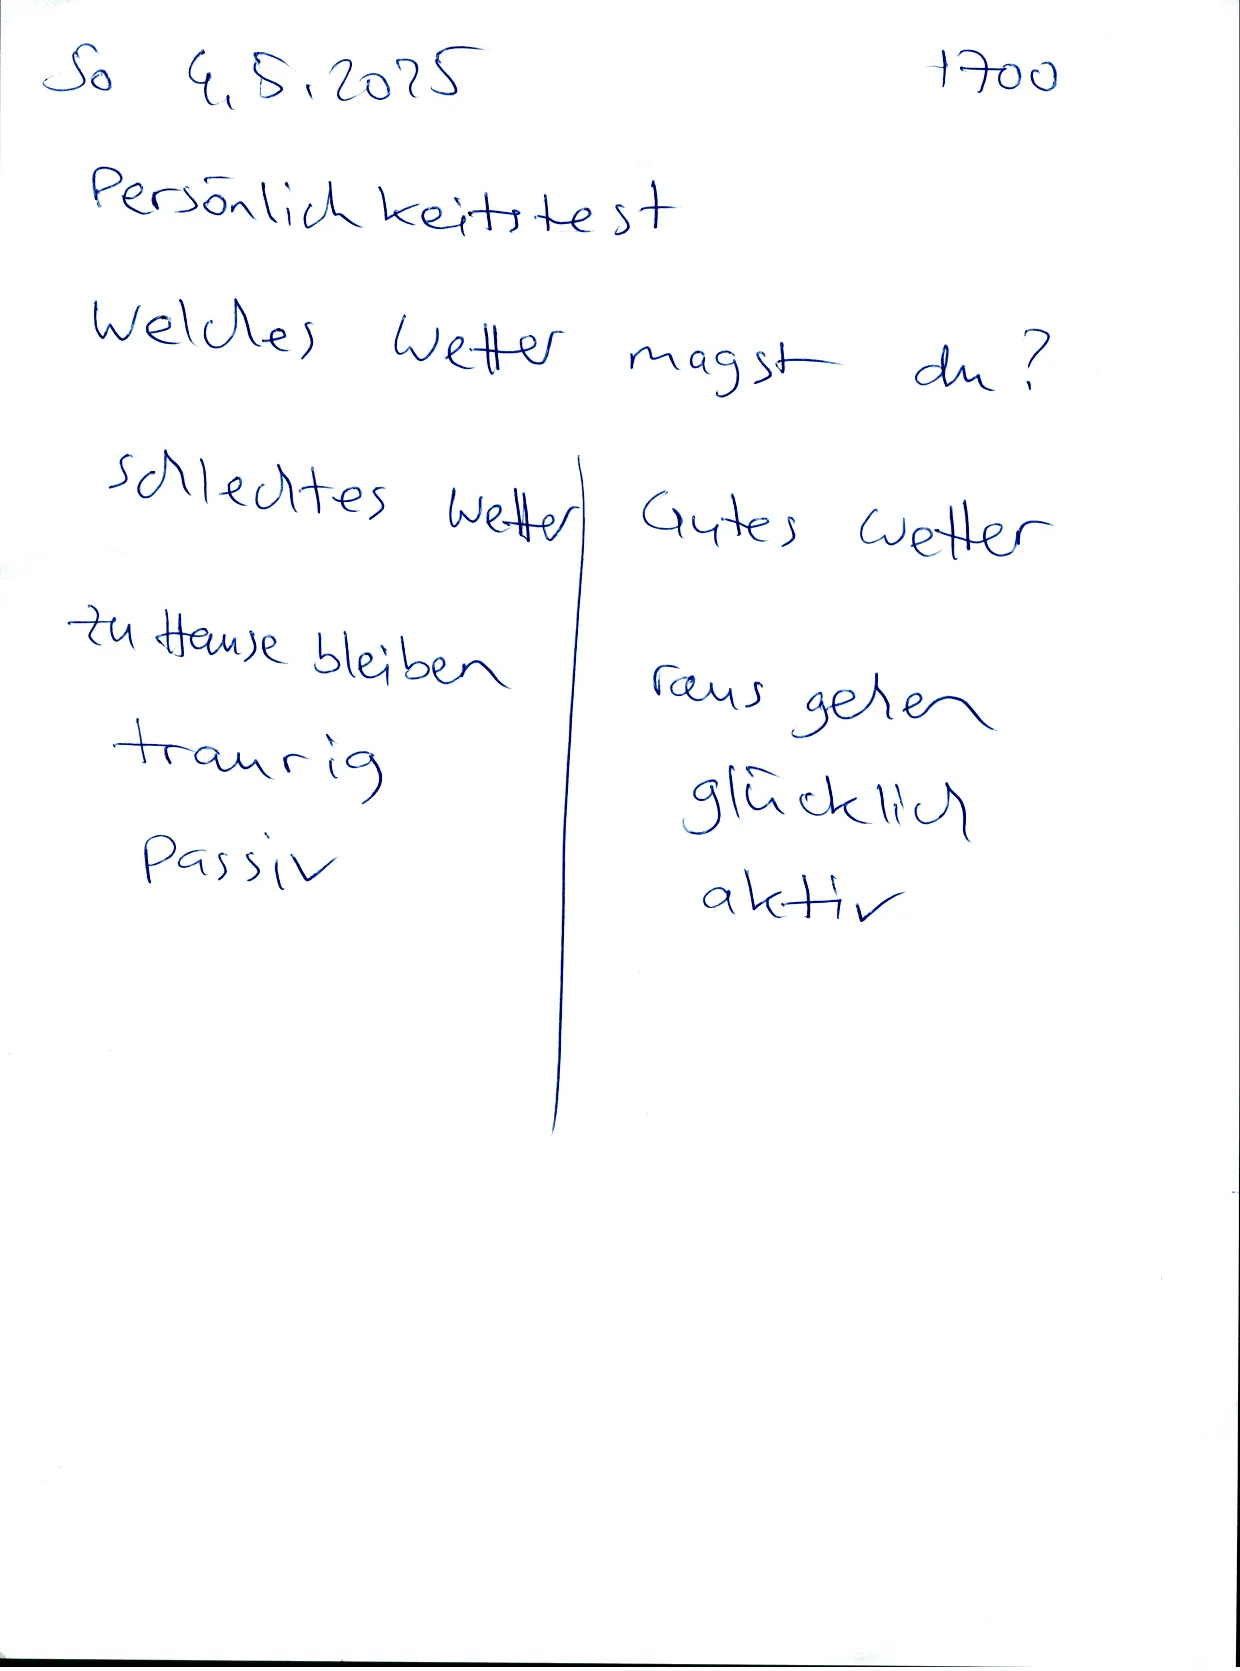 So 4.5.2025 1700
Persönlichkeitstest
Welches Wetter magst du?
schlechtes Wetter
Gutes Wetter
zu Hause bleiben
traurig
Passiv
raus gehen
glücklich
aktiv